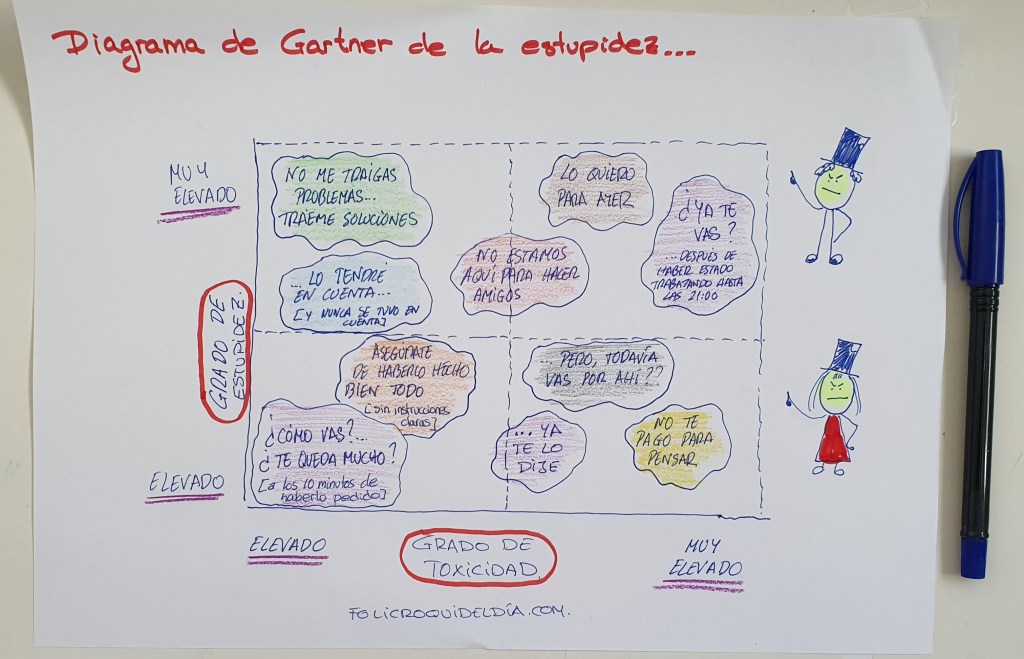 Diagrama de Gartner de la estupidez...
MUY
ELEVADO
NO ME TRAIGAS
PROBLEMAS...
TRÁEME SOLUCIONES
LO QUIERO
PARA AYER
¿YA TE
VAS?
...DESPUÉS DE
HABER ESTADO
TRABAJANDO HASTA
LAS 21:00
...LO TENDRÉ
EN CUENTA...
[Y NUNCA SE TUVO EN
CUENTA]
NO ESTAMOS
AQUÍ PARA HACER
AMIGOS
GRADO DE
ESTUPIDEZ.
ASEGÚRATE
DE HABERLO HECHO
BIEN TODO
[sin instrucciones
claras]
... PERO, TODAVÍA
VAS POR AHÍ??
¿CÓMO VAS?...
¿TE QUEDA MUCHO?
[a los 10 minutos de
haberlo pedido]
... YA
TE LO
DIJE
NO TE
PAGO PARA
PENSAR
ELEVADO
ELEVADO
GRADO DE
TOXICIDAD
MUY
ELEVADO
FOLICROQUIDELDÍA.COM.